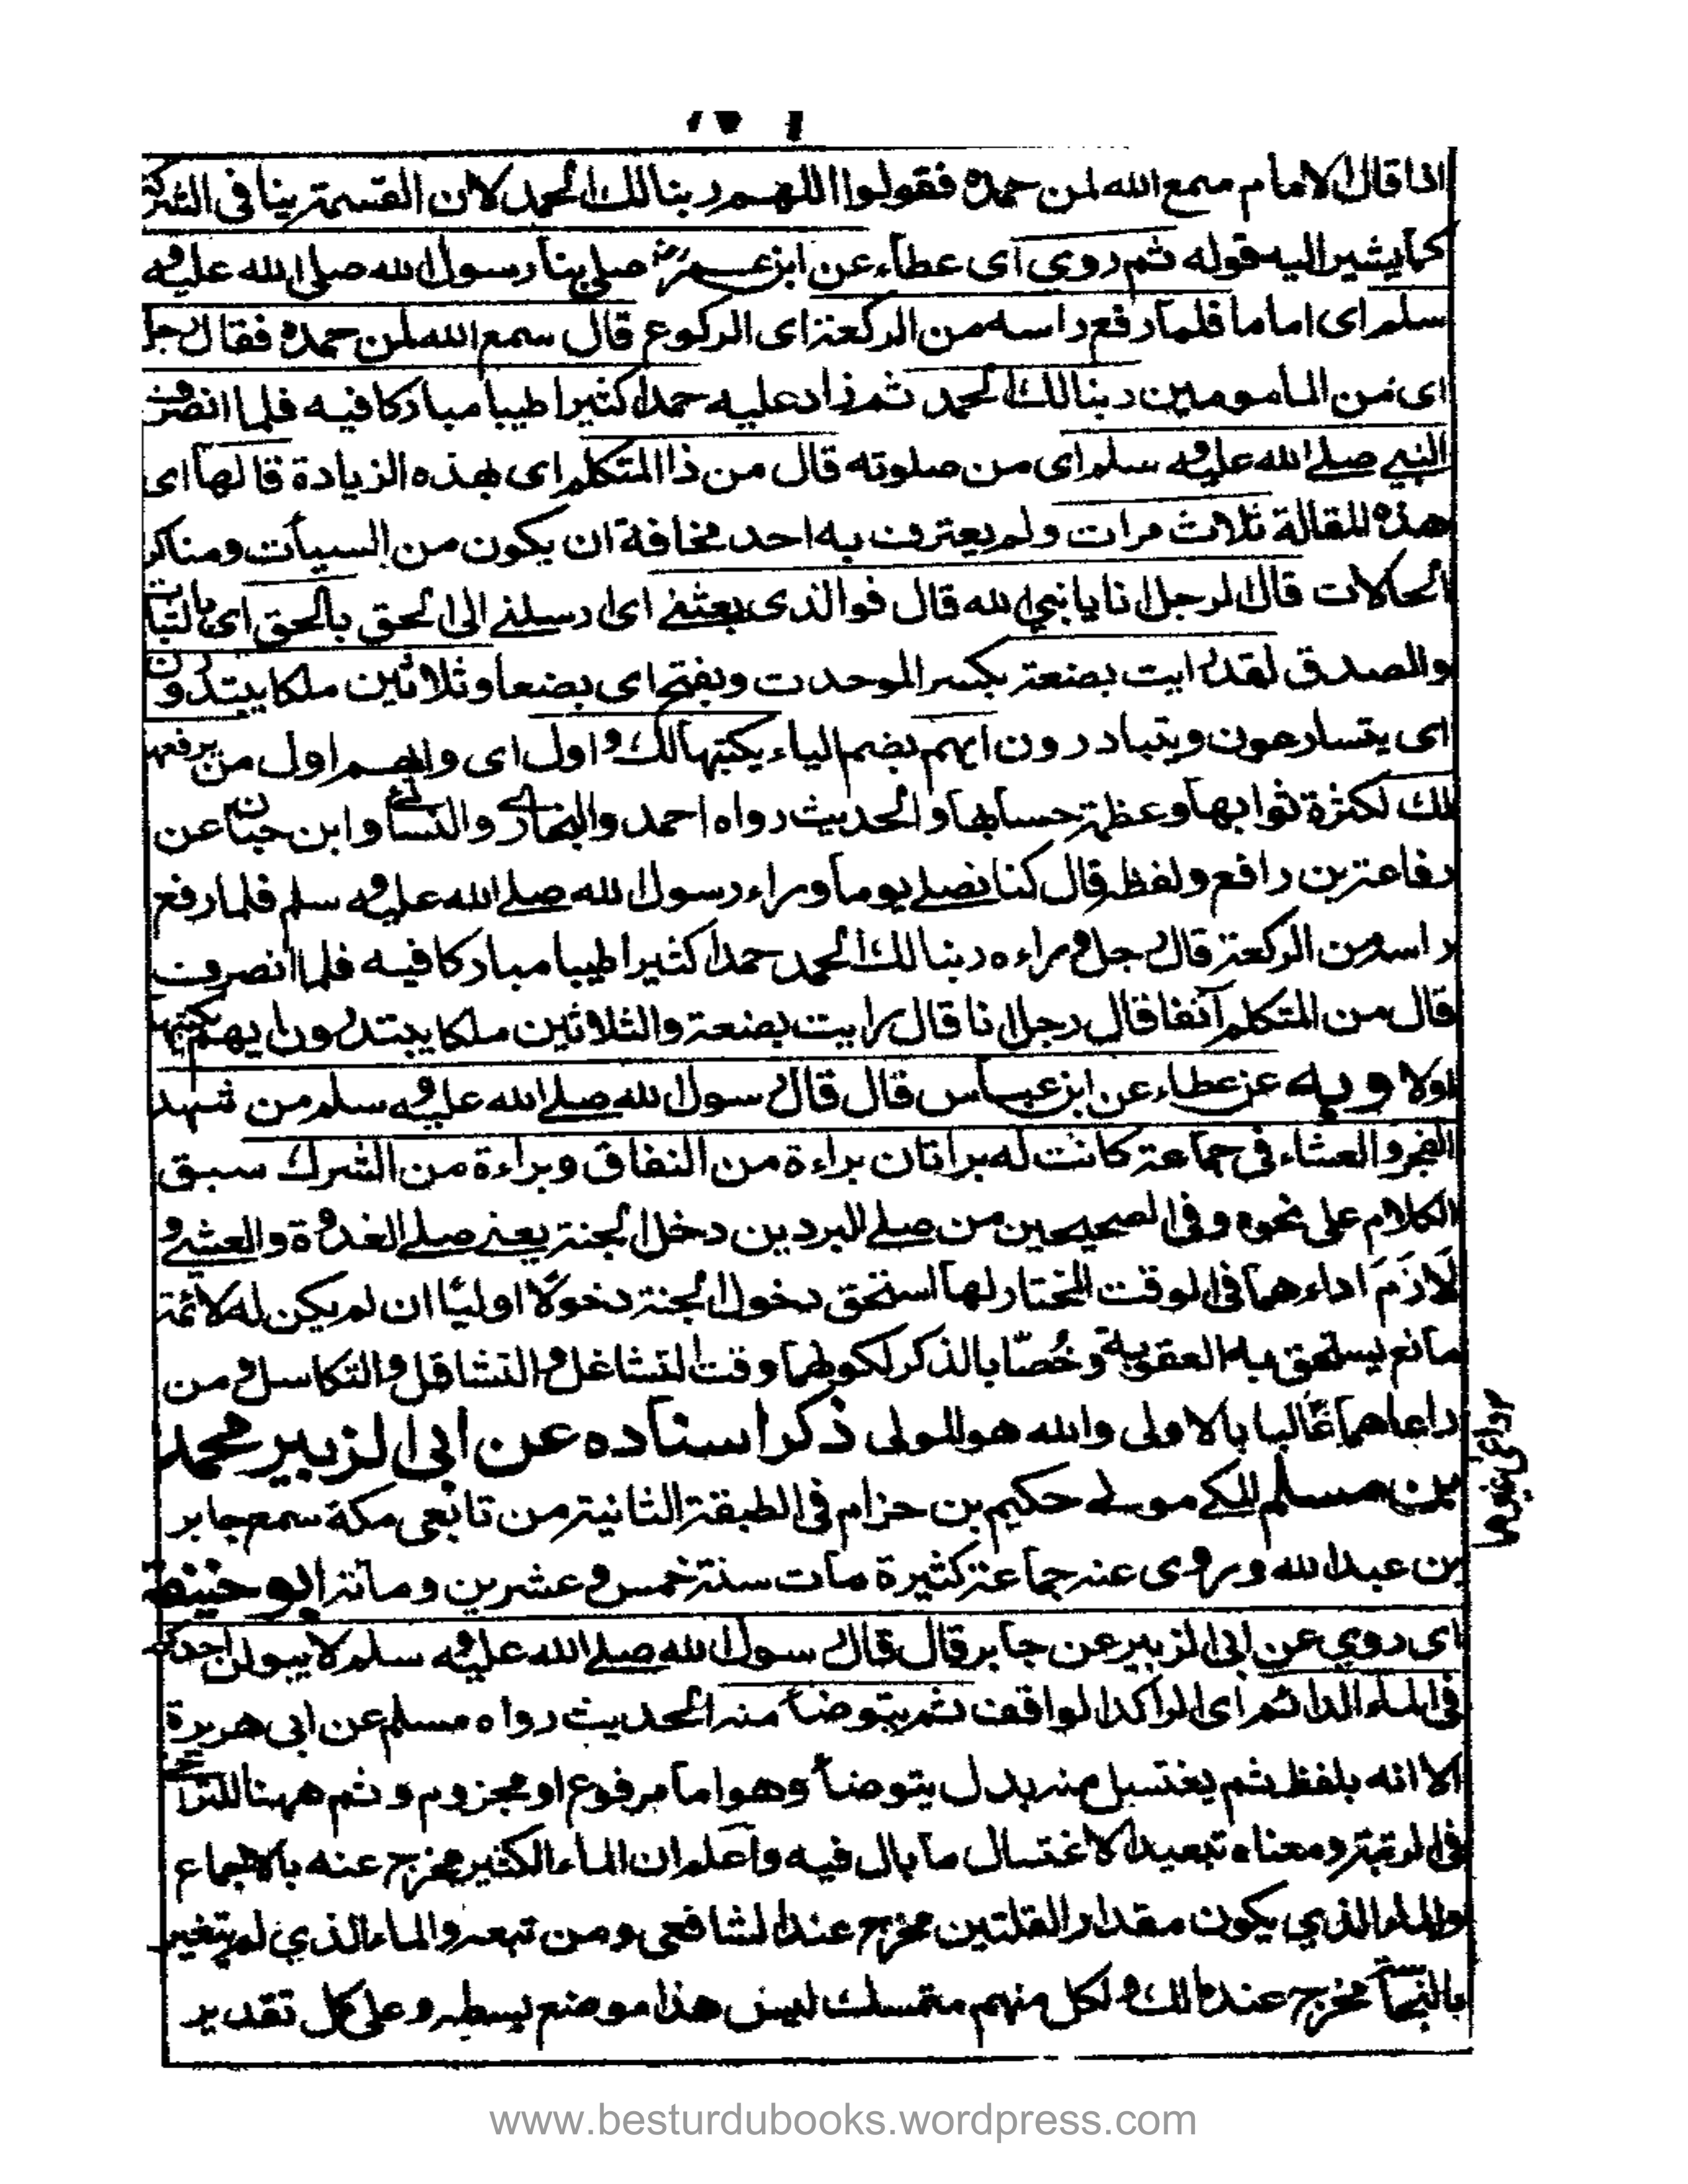 اذا قال الامام سمع الله لمن حمده فقولوا اللهم ربنا لك الحمد لان القسمة ينافى الشركة
كما يشير اليه قوله ثم روى اى عطاء عن ابن عمر صلى بنا رسول الله صلى الله عليه و
سلم اى اماما فلما رفع راسه من الركعة اى الركوع قال سمع الله لمن حمده فقال رجل
اى من المامومين ربنا لك الحمد ثم زاد عليه حمدا كثيرا طيبا مباركا فيه فلما انصرف
النبي صلے الله عليه و سلم اى من صلوته قال من ذا المتكلم اى بهذه الزيادة قالها اى
هذه المقالة ثلاث مرات ولم يعترف به احد مخافة ان يكون من السيأت ومناكر
الحالات قال الرجل انا يا نبي الله قال فوالذى بعثنے اى ارسلنے الى الحق بالحق اى بالثبات
والصدق لقد رايت بضعة بكسر الموحدت وبفتح اى بضعا وثلاثين ملكا يبتدرون
اى يتسارعون ويتبادرون ايهم بضم الياء يكتبها لك و اول اى وايهم اول من يرفعها
لك لكثرة ثوابها وعظمة حسابها والحديث رواه احمد والبخارے والنسائے وابن حبان عن
رفاعة بن رافع ولفظه قال كنا نصلے يوما وراء رسول الله صلے الله عليه و سلم فلما رفع
راسه من الركعة قال رجل وراءه ربنا لك الحمد حمدا كثيرا طيبا مباركا فيه فلما انصرف
قال من المتكلم آنفا قال رجل انا قال رايت بضعة والثلاثين ملكا يبتدرون ايهم يكتبها
اولا وبه عن عطاء عن ابن عباس قال قال رسول الله صلے الله عليه و سلم من شهد
الفجر والعشاء فى جماعة كانت له براتان براءة من النفاق وبراءة من الشرك سبق
الكلام على نحوه وفى الصحيحين من صلے البردين دخل الجنة يعنے صلے الغدوة والعشے و
لازَمَ اداءهما فى الوقت المختار لها استحق دخول الجنة دخولًا اوليًا ان لم يكن له لائمة
مانع يستحق به العقوبة وخُصّا بالذكر لكونهما وقت التشاغل و التثاقل و التكاسل و من
راعاهما غالبا بالاولى والله هو المولى ذكر اسناده عن ابى الزبير محمد
بن مسلم المكے مولے حكيم بن حزام فى الطبقة الثانية من تابعى مكة سمع جابر
بن عبد الله وروى عنه جماعة كثيرة مات سنة خمس و عشرين ومائة ابو حنيفة
اى روي عن ابى الزبير عن جابر قال قال رسول الله صلے الله عليه و سلم لا يبولن احدكم
فى الماء الدائم اى الراكد الواقف ثم يتوضأ منه الحديث رواه مسلم عن ابى هريرة
الا انه بلفظ ثم يغتسل منه بدل يتوضأ وهو اما مرفوع او مجزوم وثم ههنا للتراخى
فى الرتبة ومعناه تبعيد الاغتسال ما بال فيه واعلم ان الماء الكثير مخرج عنه بالاجماع
والماء الذي يكون مقدار القلتين مخرج عند الشافعى ومن تبعه والماء الذي لم يتغير
بالنجاسة مخرج عند مالك و لكل منهم متمسك ليس هذا موضع بسطه وعلى كل تقدير
www.besturdubooks.wordpress.com